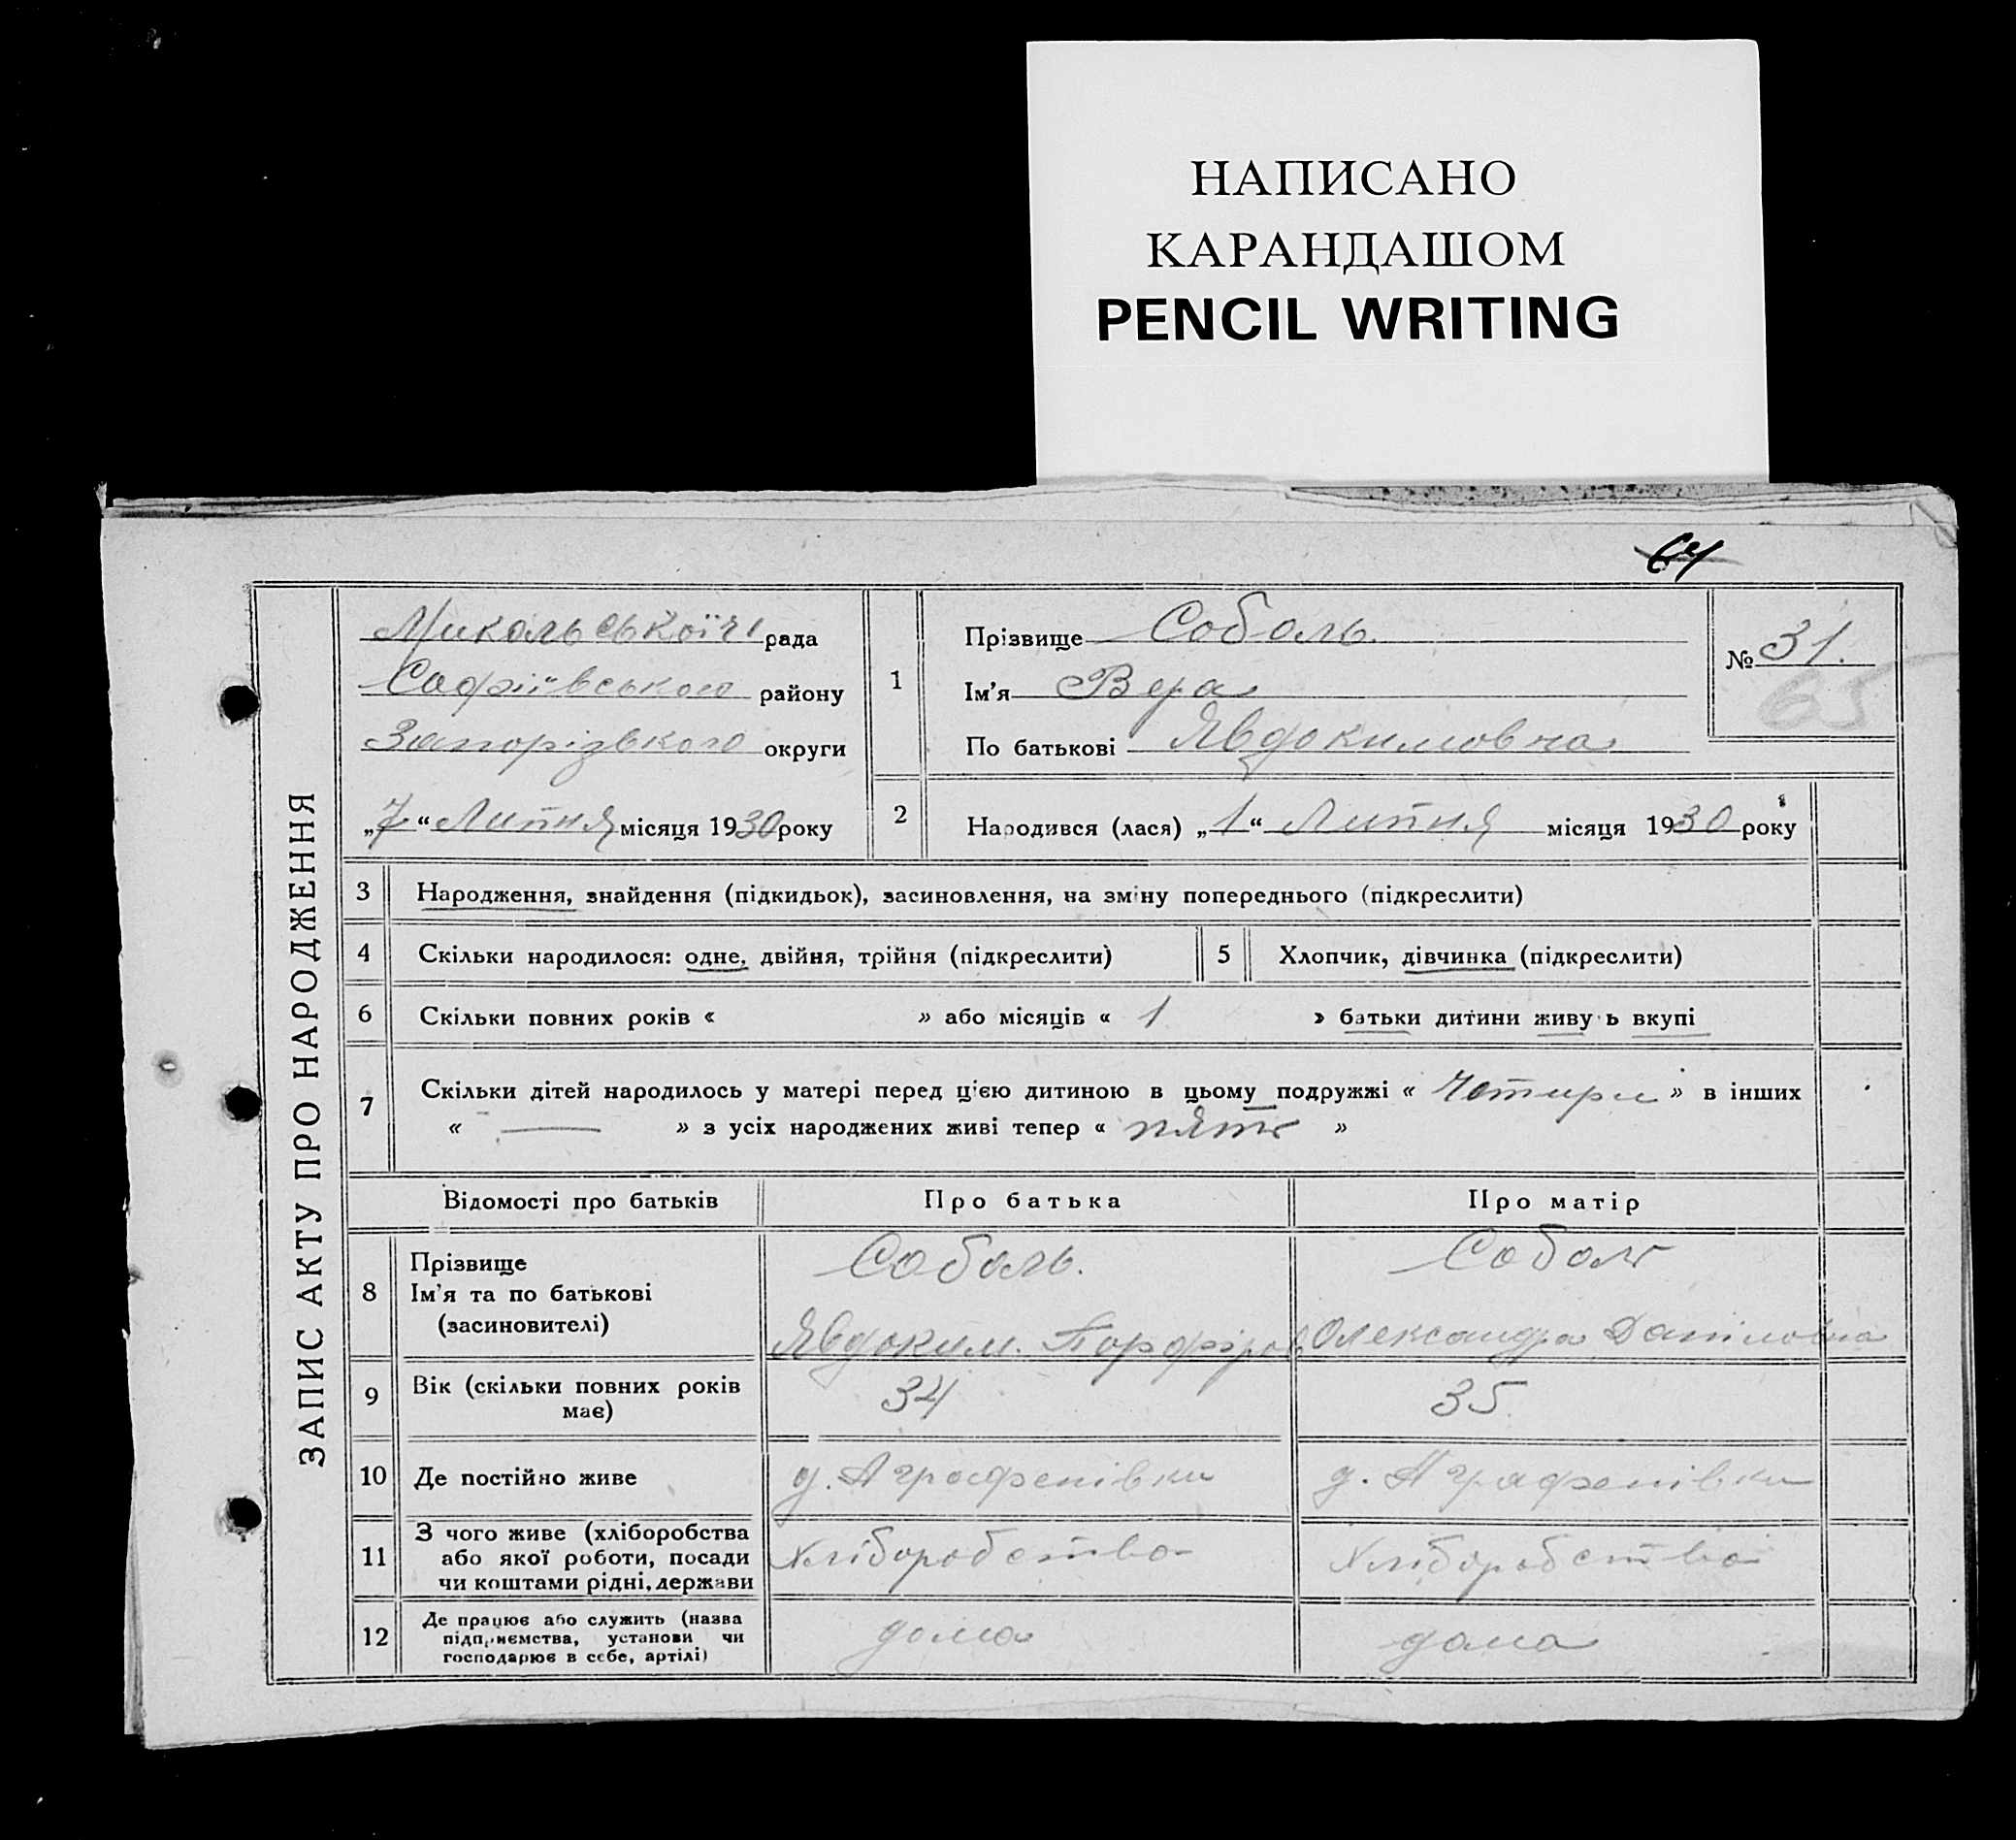 НАПИСАНО
КАРАНДАШОМ
PENCIL WRITING
64
ЗАПИС АКТУ ПРО НАРОДЖЕННЯ
Микольської рада
Софіївського району
Запорізького округи
„7“ Липня місяця 1930 року
1
Прізвище Соболь.
Ім'я Вера
По батькові Явдокимовна
№ 31.
65
2
Народився (лася) „1“ Липня місяця 1930 року
3 Народження, знайдення (підкидьок), засиновлення, на зміну попереднього (підкреслити)
4 Скільки народилося: одне, двійня, трійня (підкреслити) 5 Хлопчик, дівчинка (підкреслити)
6 Скільки повних років « » або місяців « 1 » батьки дитини живуть вкупі
7 Скільки дітей народилось у матері перед цією дитиною в цьому подружжі « Чотири » в інших
« — » з усіх народжених живі тепер « пять »
Відомості про батьків Про батька Про матір
8 Прізвище
Ім'я та по батькові
(засиновителі)
Соболь.
Явдоким. Порфіров
Соболь
Олександра Даніловна
9 Вік (скільки повних років
має)
34 35
10 Де постійно живе д. Аграфенівки д. Аграфенівки
11 З чого живе (хліборобства
або якої роботи, посади
чи коштами рідні, держави
Хліборобство Хліборобство
12 Де працює або служить (назва
підприємства, установи чи
господарює в себе, артілі)
дома дома